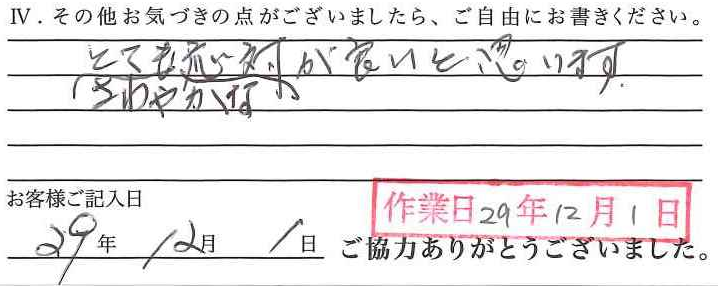 Ⅳ．その他お気づきの点がございましたら、ご自由にお書きください。
とても応対が良いと思います。
さわやかな
お客様ご記入日
作業日29年12月1日
29年 12月 1日 ご協力ありがとうございました。